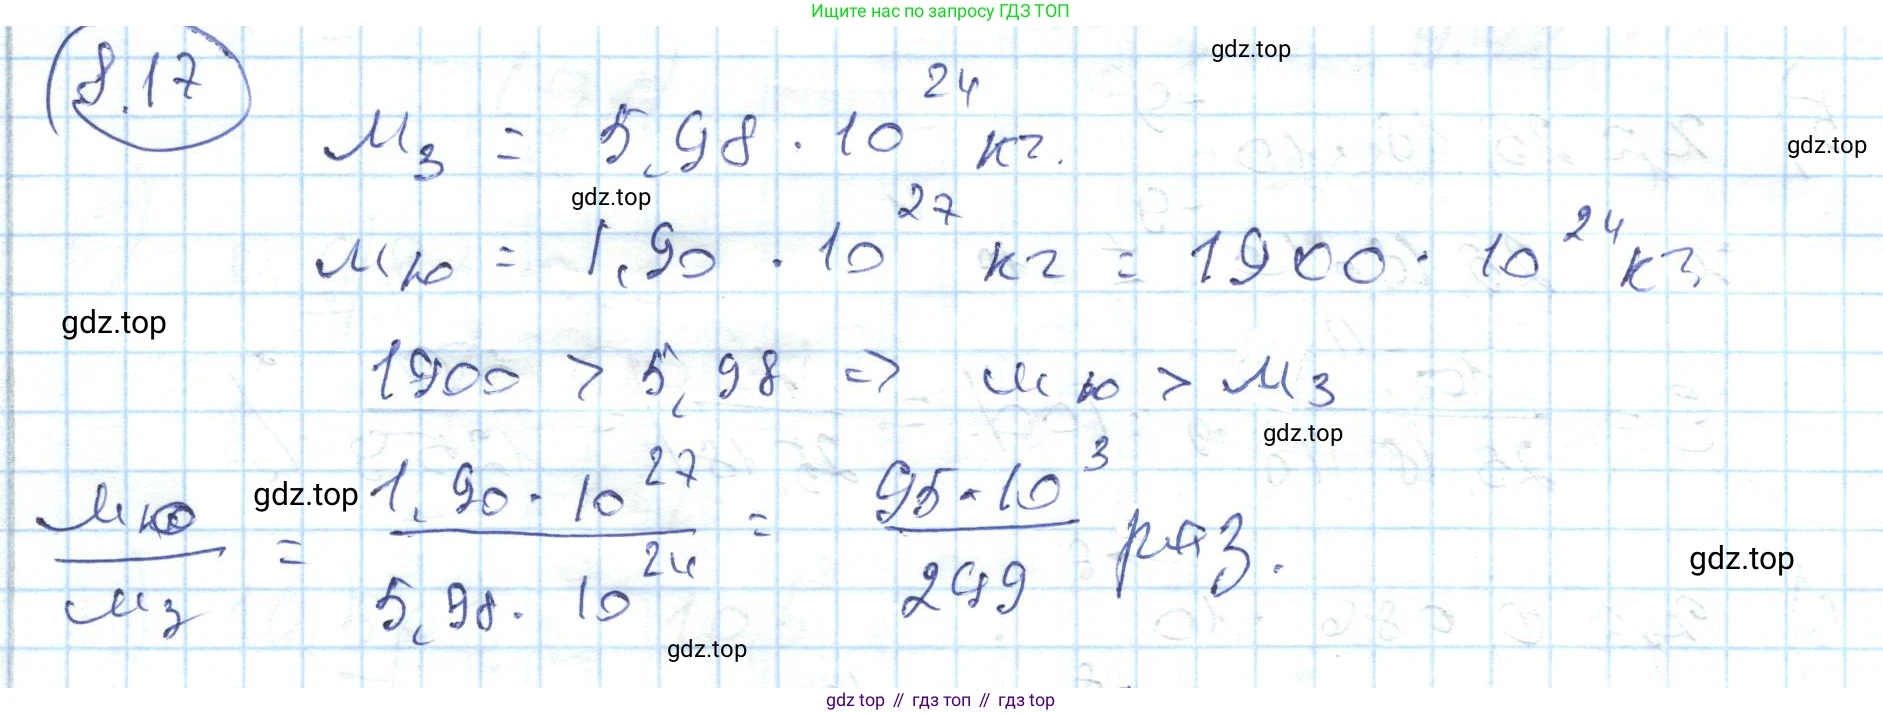 Ищите нас по запросу ГДЗ ТОП
8.17
gdz.top
Mз = 5,98 · 10^24 кг.
gdz.top
gdz.top
Mю = 1,90 · 10^27 кг = 1900 · 10^24 кг
gdz.top
1900 > 5,98 => Mю > Mз
gdz.top
Mю/Mз = (1,90 · 10^27)/(5,98 · 10^24) = (95 · 10^3)/299 раз.
gdz.top
gdz.top
gdz.top
gdz top // гдз топ // гдз top